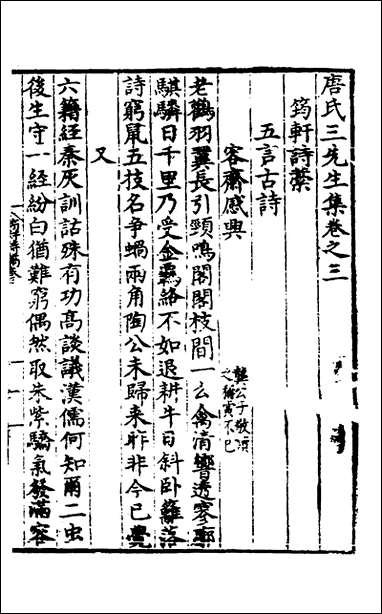 唐氏三先生集卷之三
筠軒詩藁
五言古詩
客齋感興
龔公子敬頌
之稱賞不已
老鶴羽翼長引頸鳴閣閣枝間一么禽清響透寥廓
騏驎日千里乃受金羈絡不如退耕牛日斜卧籬落
詩窮鼠五技名爭蝸兩角陶公未歸來昨非今已覺
又
六籍經秦灰訓詁殊有功高談議漢儒何知爾二虫
後生守一經紛白猶難窮偶然取朱紫驕氣發滿容